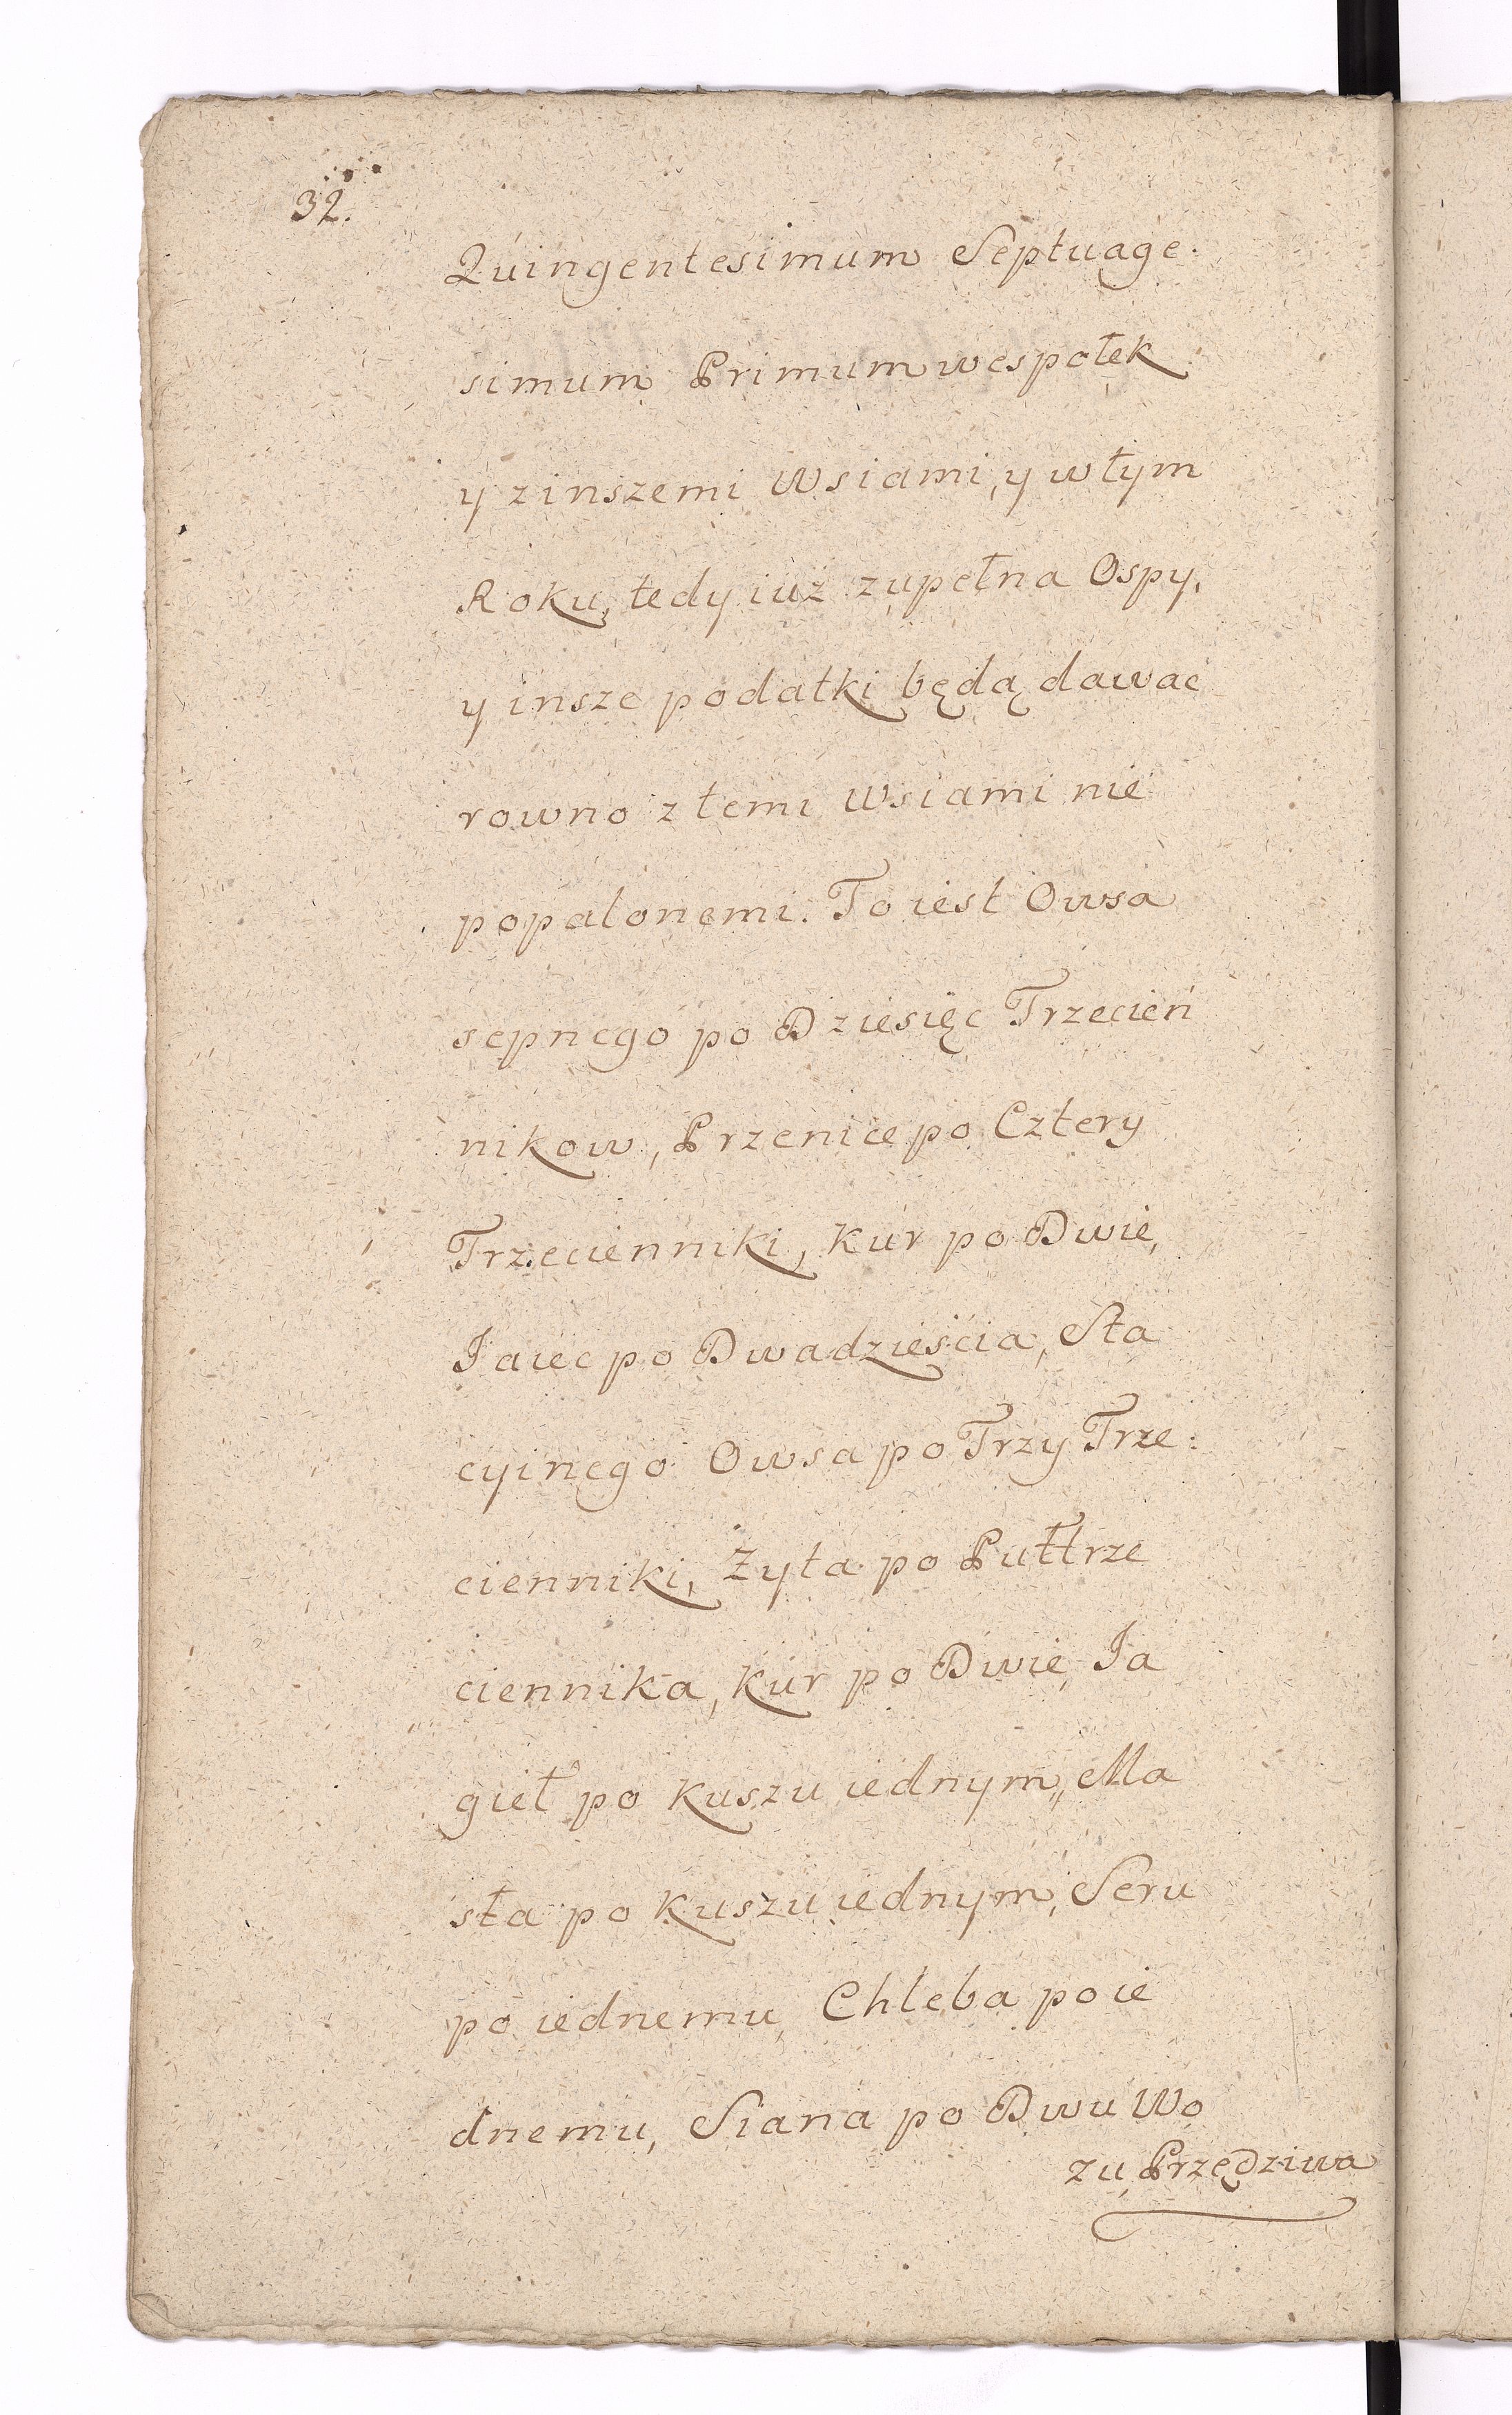 32.
Quingentesimum Septuage.
simum Primum wespołek
y z inszemi Wsiami, y w tym
Roku, tedy iuż zupełna Ospy,
y insze podatki będą dawać
rowno z temi Wsiami nie
popalonemi. To iest Owsa
sepnego po Dziesięc Trzecień
nikow, Przenice po Cztery
Trzecienniki, Kur po Dwie,
Jaiec po Dwadzieścia, Sta
cyinego Owsa po Trzy Trze:
cienniki, Żyta po Pułtrze
ciennika, Kur po Dwie, Ja
gieł po Kuszu iednym, Ma
sła po Kuszu iednym, Seru
po iednemu, Chleba po ie
dnemu, Siana po Dwu Wo
zu, Przędziwa